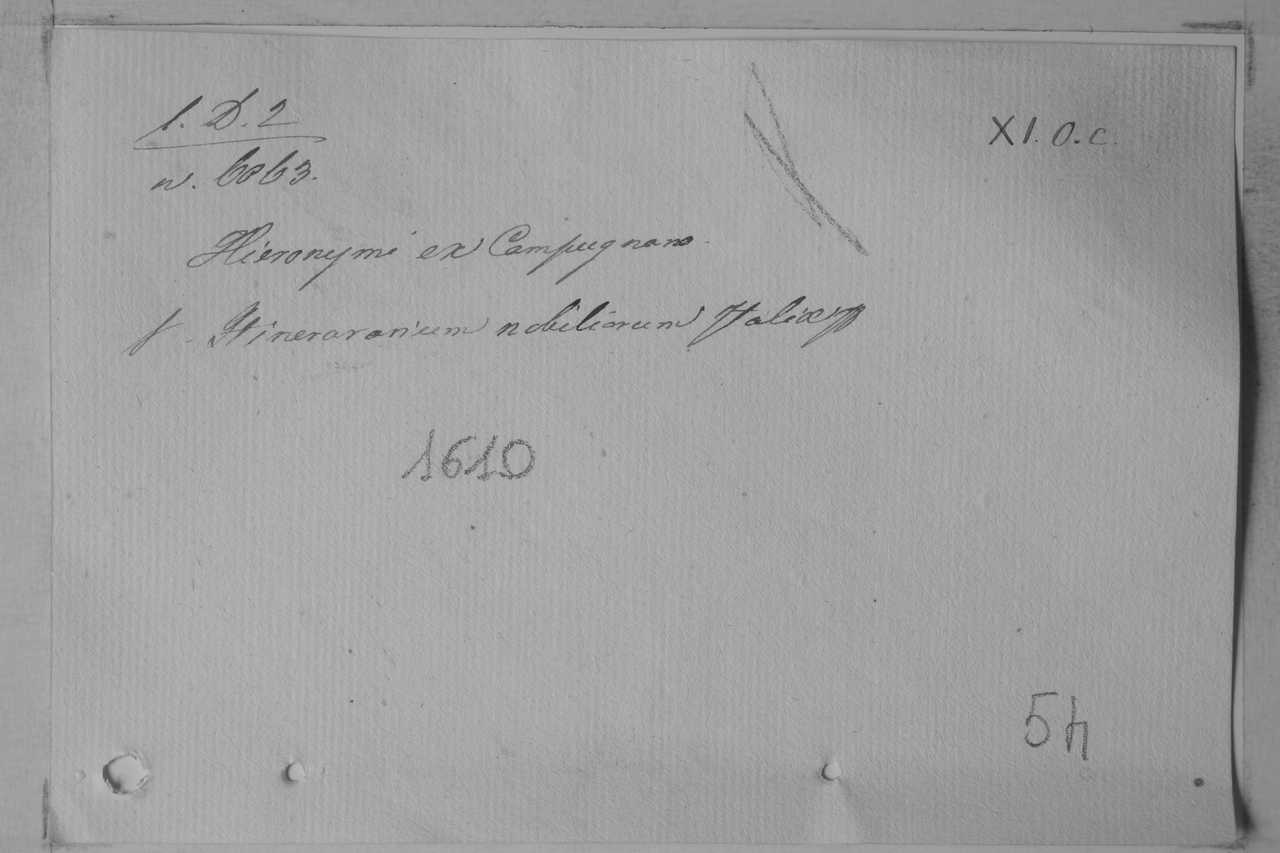 l. D. 2
XI. O. c.
n. 6063.
Hieronymi ex Campugnano.
f. Itinerararium nobiliorum Italiæ
1610
54